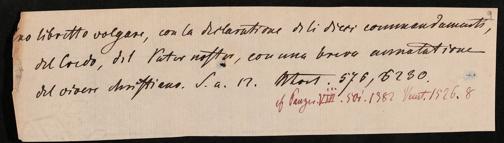 no libretto volgare, con la dechiaratione deli dieci commandamenti,
del Credo, del Pater noster, con una breve annotatione
del vivere christiano. S. a. 12. Mort. 576, 6230.
cf Panzer VIII. 501. 1382 Venet. 1526. 8